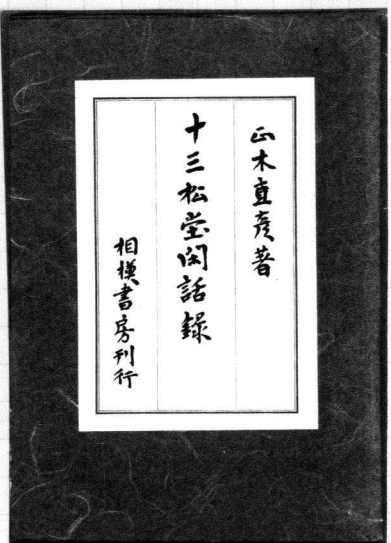 正木直彦著
十三松堂閑話録
相模書房刊行